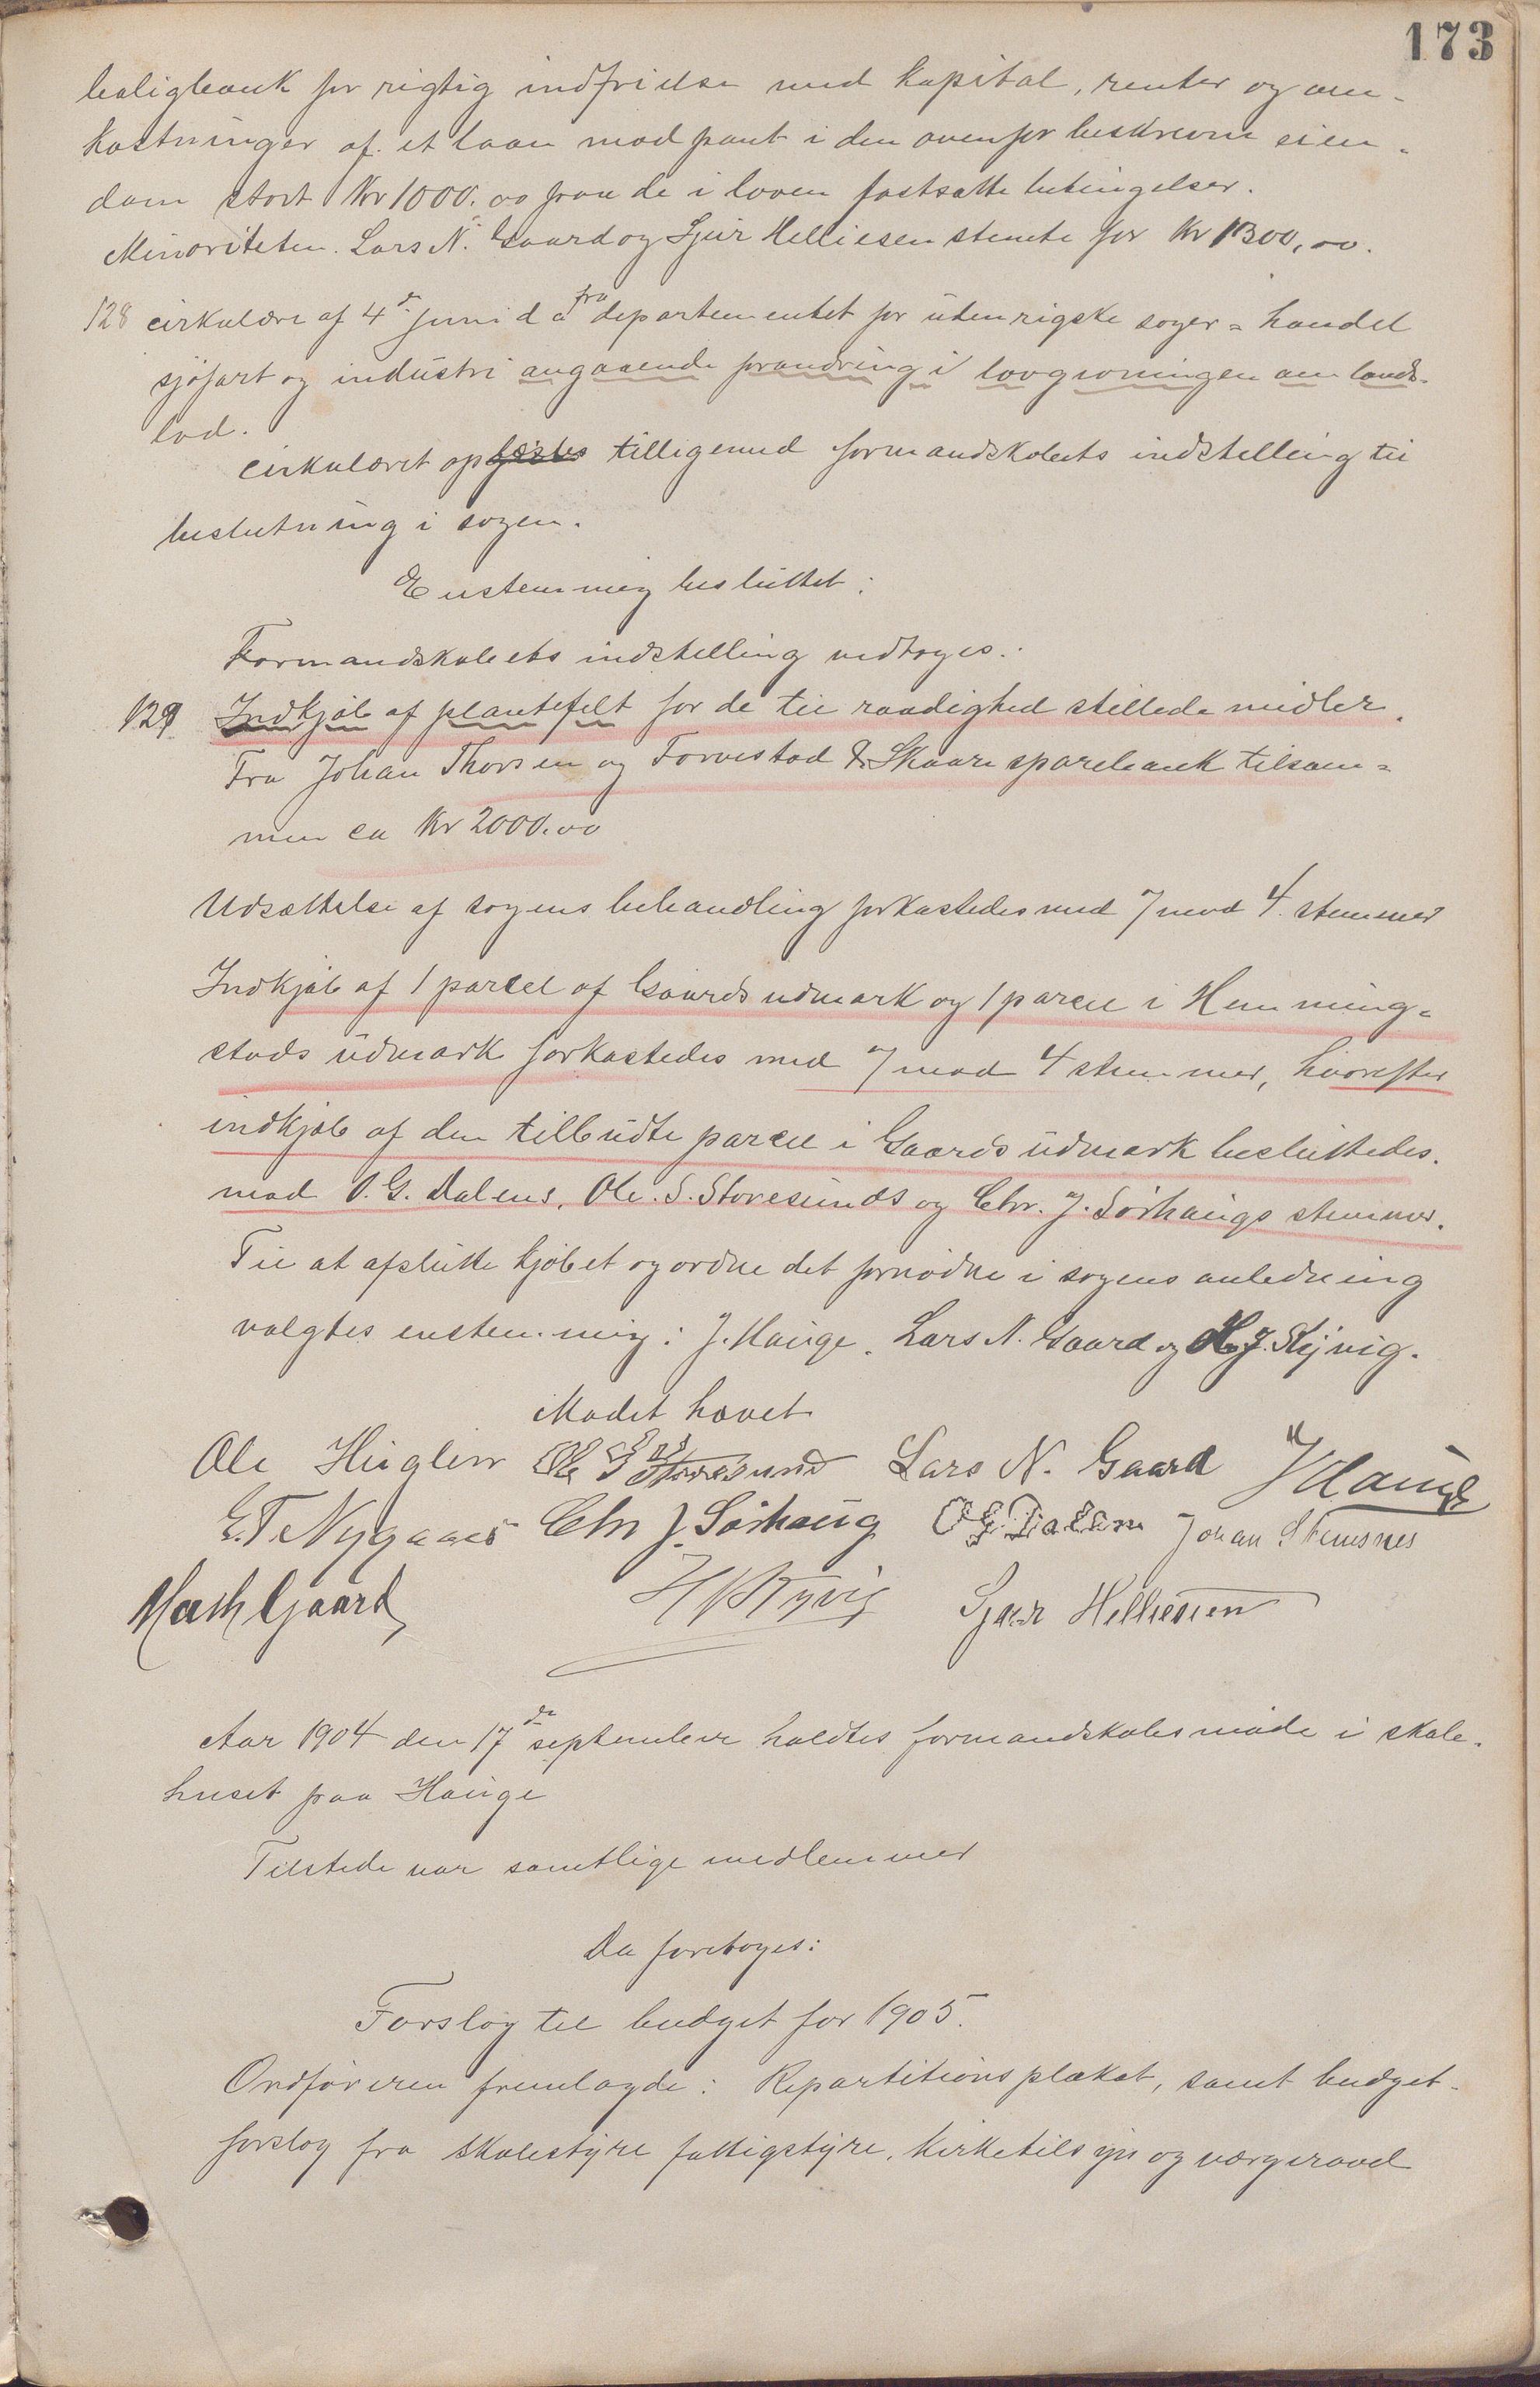 173
boligbank for rigtig indfrielse med kapital, renter og om-
kostninger af et laan mod pant i den ovenfor beskrevne eien-
dom stort Kr 1000.00 paa de i loven fastsatte betingelser.
Minoriteten Lars N. Gaard og Sjur Helliesen stemte for Kr 1300,00.
128 cirkulære af 4de juni d a fra departementet for utenrigske sager - handel
sjøfart og industri angaaende forandring i lovgivningen om lands-
lod.
Cirkulæret oplæstes tilligemed formandskabets indstilling til
beslutning i sagen.
Enstemmig besluttet:
Formandskabets indstilling vedtoges.
129 Indkjøb af plantefelt for de til raadighed stillede midler.
Fra Johan Thorsen og Torvestad & Skaare sparebank tilsam-
men ca Kr 2000.00
Udsættelse af sagens behandling forkastedes med 7 mod 4 stemmer
Indkjøb af 1 parcel af Gaards udmark og 1 parcel i Hemming-
stads udmark forkastedes med 7 mod 4 stemmer, hvorefter
indkjøb af den tilbudte parcel i Gaards udmark besluttedes.
mod O. G. Dalens, Ole S. Storesunds og Chr. J. Sørhaugs stemmer.
Til at afslutte kjøbet og ordne det fornødne i sagens anledning
valgtes enstemmig: J. Hauge. Lars N. Gaard og H. J. Skjvig.
Mødet hævet
Ole Huglen Ole S Storesund Lars N. Gaard J Hauge
E. T. Nygaard Chr J. Sørhaug O G Dalen Johan Stensnes
Math Gaard H J Kyvig Sjur Helliesen
Aar 1904 den 17de september holdtes formandskabsmøde i skole-
huset paa Hauge
Tilstede var samtlige medlemmer
Da foretoges:
Forslag til budget for 1905.
Ordføreren fremlagde: Repartitionsplakat, samt budget-
forslag fra skolestyre fattigstyre, kirketilsyn og værgeraad